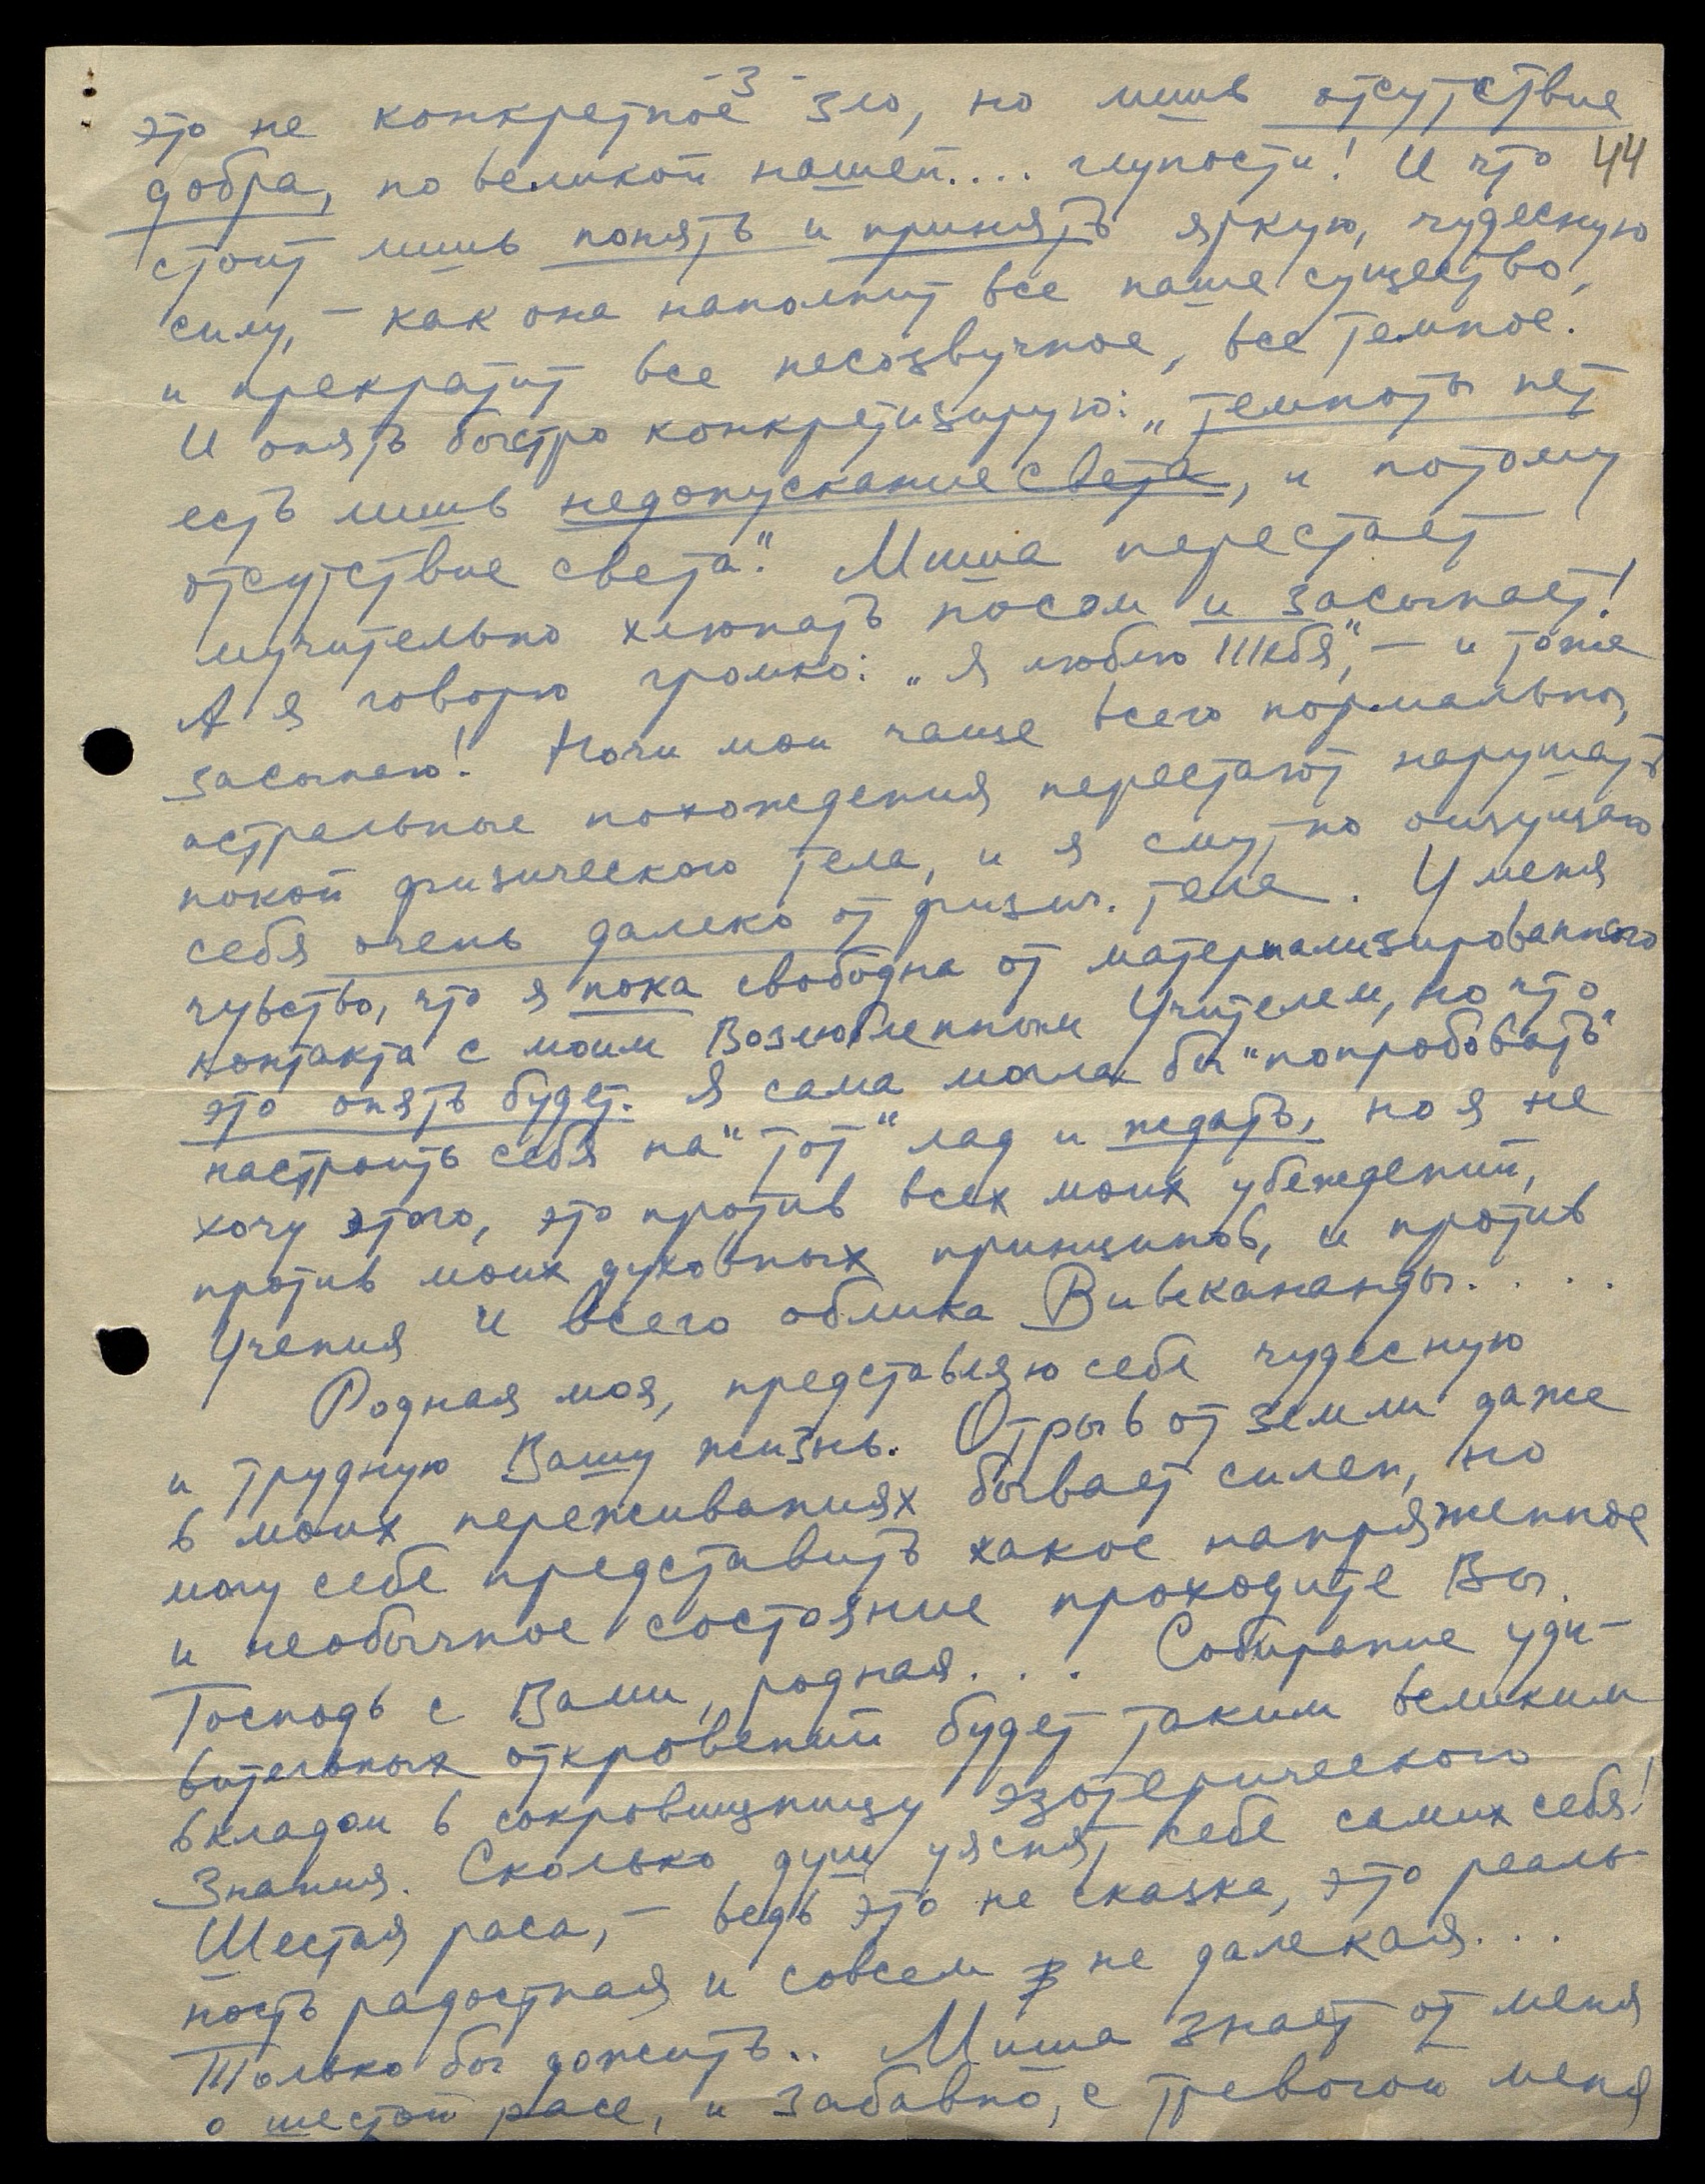 -3-
это не конкретное зло, но лишь отсутствие
добра, по великой нашей.... глупости! И что
44
стоит лишь понять и принять яркую, чудесную
силу, - как она наполнит все наше существо,
и прекратит все несозвучное, все темное.
И опять быстро конкретизирую: "темноты нет
есть лишь недопускание света, и потому
отсутствие света." Миша перестает
мучительно хлюпать носом и засыпает!
А я говорю громко: "Я люблю Тебя", - и тоже
засыпаю! Ночи мои чаще всего нормальны,
астральные похождения перестают нарушать
покой физического тела, и я смутно ощущаю
себя очень далеко от физич. тела. У меня
чувство, что я пока свободна от материализированного
контакта с моим Возлюбленным Учителем, но что
это опять будет. Я сама могла бы "попробовать"
настроить себя на "тот" лад и ждать, но я не
хочу этого, это против всех моих убеждений,
против моих духовных принципов, и против
Учения и всего облика Вивекананды....
Родная моя, представляю себе чудесную
и трудную Вашу жизнь. Отрыв от земли даже
в моих переживаниях бывает силен, но
могу себе представить какое напряженное
и необычное состояние проходите Вы.
Господь с Вами, родная... Собирание уди-
вительных откровений будет таким великим
вкладом в сокровищницу эзотерического
Знания. Сколько душ уяснят себе самих себя!
Шестая раса, - ведь это не сказка, это реаль-
ность радостная и совсем не далекая...
Только бы дожить.. Миша знает от меня
о шестой расе, и забавно, с тревогой меня